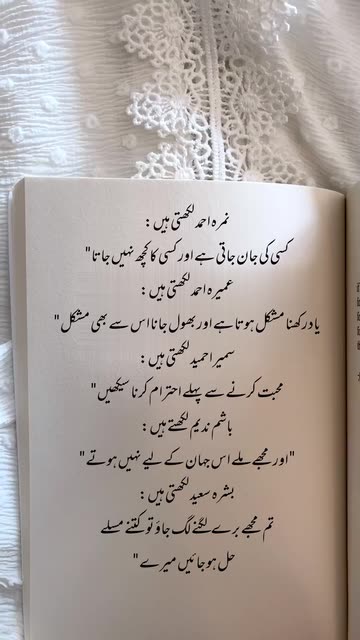 نمرہ احمد لکھتی ہیں :
کسی کی جان جاتی ہے اور کسی کا کچھ نہیں جاتا"
عمیرہ احمد لکھتی ہیں :
یاد رکھنا مشکل ہوتا ہے اور بھول جانا اس سے بھی مشکل "
سمیرا حمید لکھتی ہیں :
محبت کرنے سے پہلے احترام کرنا سیکھیں"
ہاشم ندیم لکھتے ہیں :
"اور مجھے ملے اس جہان کے لیے نہیں ہوتے "
بشرہ سعید لکھتی ہیں :
تم مجھے برے لگنے لگ جاؤ تو کتنے مسلے
حل ہو جائیں میرے "